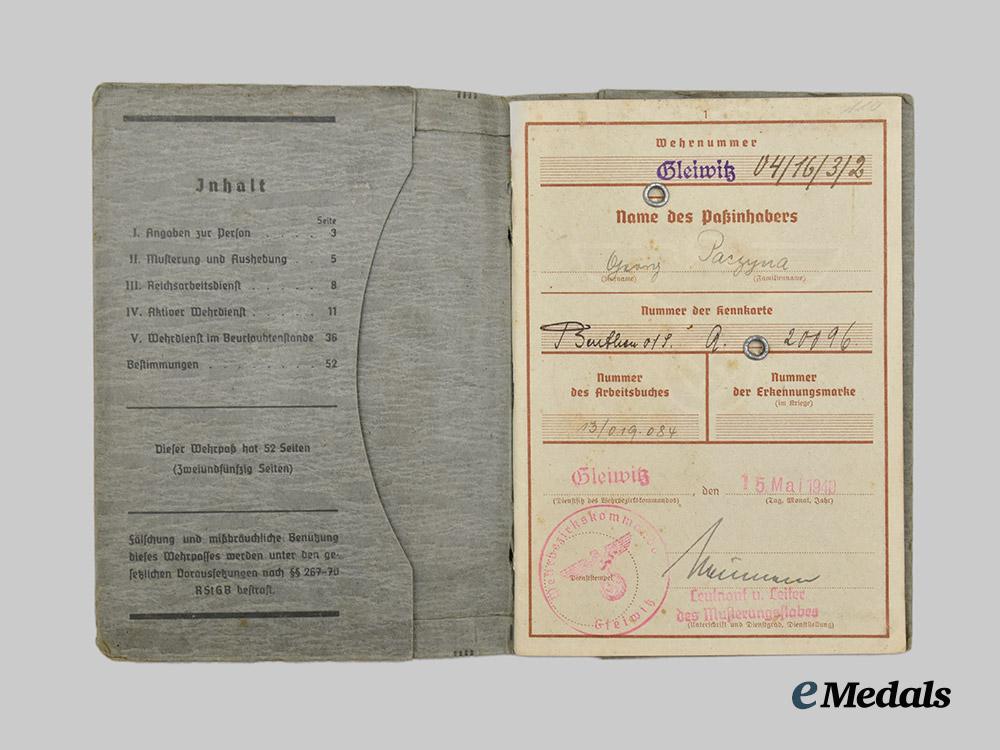 Inhalt
Seite
I. Angaben zur Person . . . . . 3
II. Musterung und Aushebung . . 5
III. Reichsarbeitsdienst . . . . . 8
IV. Aktiver Wehrdienst . . . . . 11
V. Wehrdienst im Beurlaubtenstande 36
Bestimmungen . . . . . . . . 52
Dieser Wehrpaß hat 52 Seiten
(Zweiundfünfzig Seiten)
Fälschung und mißbräuchliche Benutzung
dieses Wehrpasses werden unter den ge-
setzlichen Voraussetzungen nach §§ 267–70
RStGB bestraft.
110
1
Wehrnummer
Gleiwitz 04/16/3/2
Name des Paßinhabers
Georg Paczyna
(Rufname) (Familienname)
Nummer der Kennkarte
Beuthen O/S. A. 20096
Nummer
des Arbeitsbuches
13/019.084
Nummer
der Erkennungsmarke
(im Kriege)
Gleiwitz, den 15. Mai 1940
(Dienstsitz des Wehrbezirkskommandos) (Tag, Monat, Jahr)
Wehrbezirkskommando
Dienststempel
Gleiwitz
Leutnant u. Leiter
des Musterungsstabes
(Unterschrift und Dienstgrad, Dienststellung)
eMedals